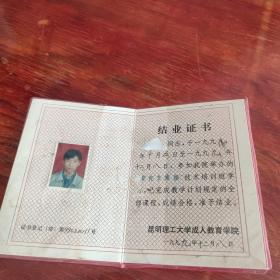 结业证书
同志,于一九九
年十月 日至一九九 年
十二月八日,参加我院举办的
技术培训班学
习,已完成教学计划规定的全
部课程,成绩合格,准予结业。
昆明理工大学成人教育学院
一九九 年十二月八日
证书登记(培)第
号